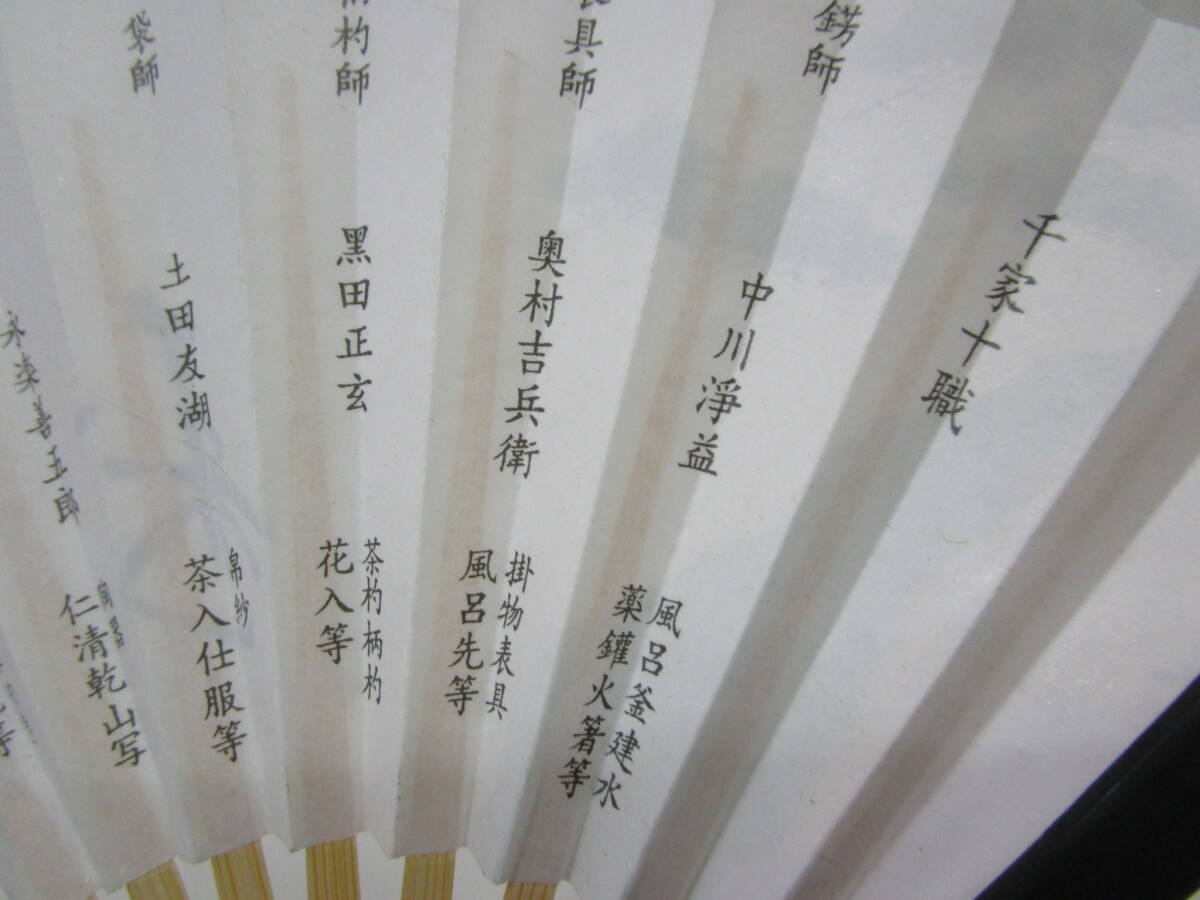 千家十職
錺師
中川淨益
風呂釜建水
薬鑵火箸等
表具師
奥村吉兵衛
掛物表具
風呂先等
杓師
黑田正玄
茶杓柄杓
花入等
袋師
土田友湖
帛紗
茶入仕服等
永楽善五郎
仁清乾山写
等